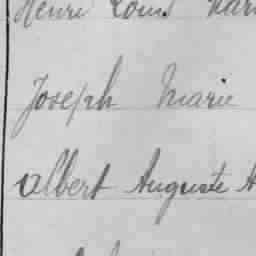 Henri Louis
Joseph Marie
Albert Auguste